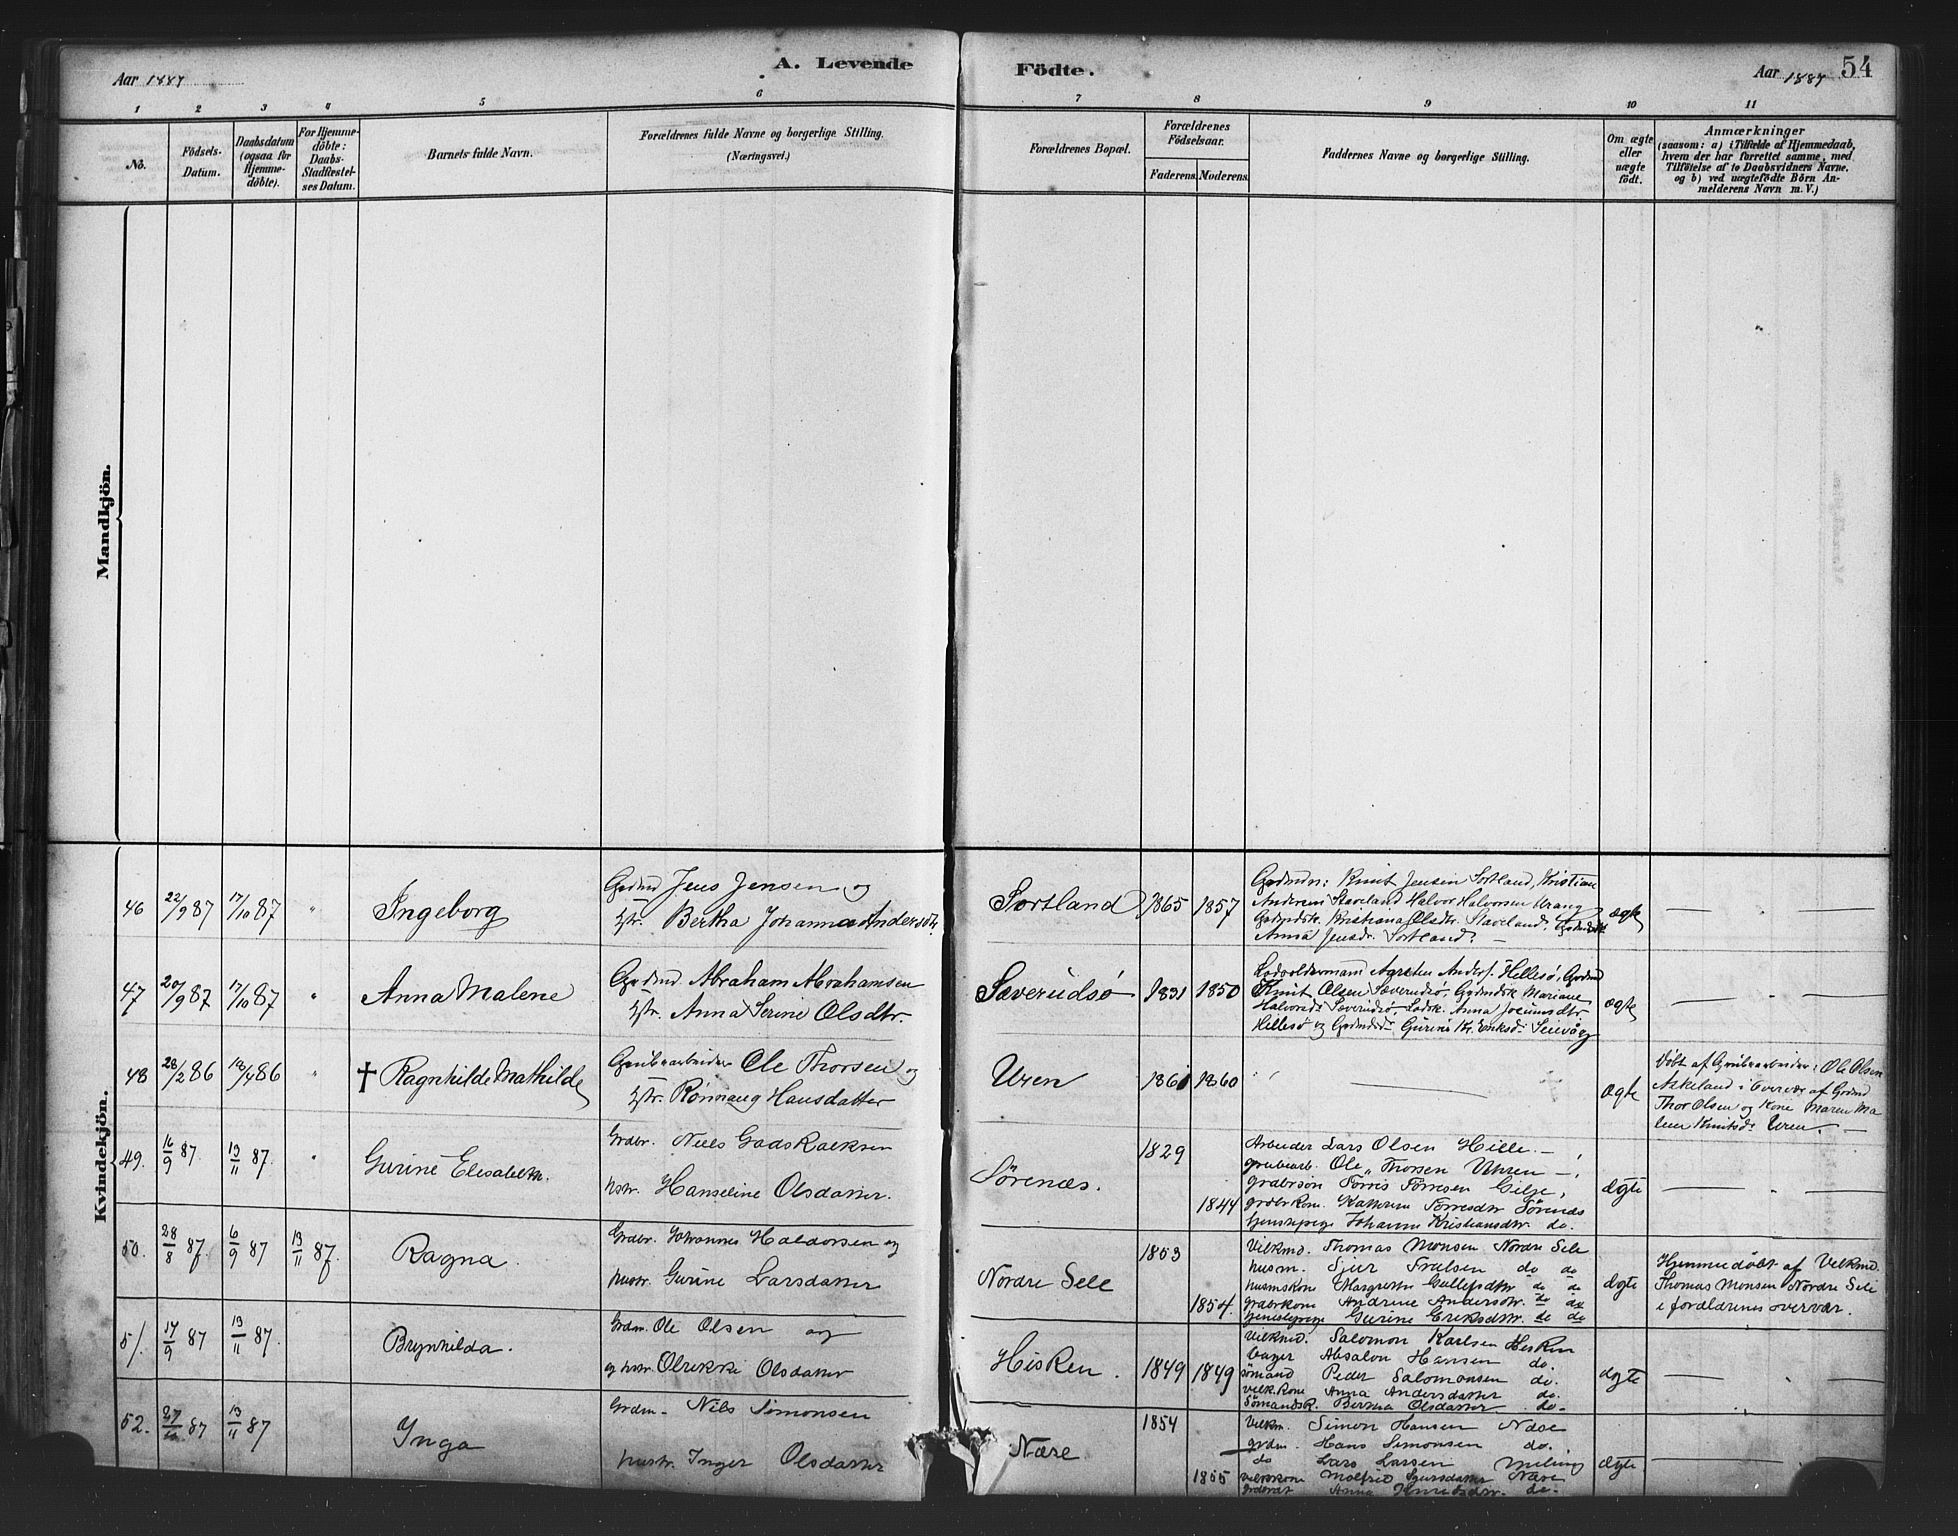 Aar 1887
A. Levende
Födte.
Aar 1887
54
1 2 3 4 5 6 7 8 9 10 11
No.
Födsels-
Datum.
Daabsdatum
(ogsaa for
Hjemme-
döbte).
For Hjemme-
döbte:
Daabs-
Stadfæstel-
ses Datum.
Barnets fulde Navn.
Forældrenes fulde Navne og borgerlige Stilling.
(Næringsvei.)
Forældrenes Bopæl.
Forældrenes
Födselsaar.
Faderens. Moderens.
Faddernes Navne og borgerlige Stilling.
Om ægte
eller
uægte
födt.
Anmærkninger
(saasom: a) i Tilfælde af Hjemmedaab,
hvem der har forrettet samme, med
Tilföielse af to Daabsvidners Navne,
og b) ved uægtefödte Börn An-
melderens Navn m. V.)
Mandkjön.
Kvindekjön.
46 22/9 87 17/10 87 " Ingeborg
Grdmd Jens Jensen og
Hstr. Bertha Johanne Andersdtr.
Sortland 1865 1857
Grdmdn: Knut Jensen Sortland, Kristian
Andersens Staveland Halvor Halvorsen Urang
Grdmdsk. Kristiana Olsdtr. Staveland, Grdmdsk
Anna Jensdr. Sortland.
ægte — " —
47 20/9 87 17/10 87 " Anna Malene
Grdmd Abraham Abrahamsen
Hstr. Anna Serine Olsdtr.
Sæverudsø 1831 1850
Lodsoldermann Anders. Hellesø, Grdmd
Knut Olsen Sæverudsø, Grdmdsk Mariane
Halvorsd. Sæverudsø, Lodsk. Anna
Hellesø og Grdmdsd. Gurine Eriksd.
ægte — " —
48 28/2 86 18/4 86 " † Ragnhilde Mathilde
Grubearbeider Ole Thorsen og
Hstr. Rønnaug Hansdatter
Uren 1861 1860
" —
Ægte
Døbt af Grubearbeider: Ole Olsen
Askeland i Overvær af Grdmd
Thor Olsen og Kone Maren Ma
lene Knutsd. Uren. —
49. 16/9 87 13/11 87. " Gurine Elisabeth.
Grdbr. Niels Gadskalksen
hstr. Hanseline Olsdatter.
Sørenæs. 1829 1844
Arbeider Lars Olsen Hille. —
grubearb. Ole Thorsen Uhren —,
grdbrsøn Torris Torresen Gilje,
grdbrkone Kathrine Torresdtr Sørenæs
tjenestepige Johanne Kristiansdtr. do.
Ægte — " —
50. 28/8 87. 6/9 87 13/11 87. Ragna.
Grdbr. Johannes Haldorsen og
hustr. Gurine Larsdatter
Nordre Sele 1853 1854.
Vilkmd. Thomas Monsen Nordre Sele
husm. Sjur do do
husmskone Margrethe do do
grdbrkone Andrine Andersdtr. do do
tjenestepige Gurine Eriksdtr. do do
Ægte
Hjemmedøbt af Vilkmd.
Thomas Monsen Nordre Sele
i forældrenes overvær.
51. 17/9 87 13/11 87. Brynhilda.
Grdm. Ole Olsen og
og hstr. Olrikke Olsdatter
Hisken. 1849 1849
Vilkmd. Salomon Karlsen Hisken
Absalon Hansen do.
sømand Peder Salomonsen do.
vilk.kone Anna Andersdatter do.
Sømandsk. Bertha Olsdatter do.
Ægte — " —
52. 27/10 87 13/11 87 Inga
Grdm. Nils Simonsen
hustr. Inger Olsdatter
Nære 1854 1855
Vilkm. Simon Hansen Nære
grdm. Hans Simonsen do.
do Lars Larsen Meling
vilkkone Sjursdatter Nære
Anna Knudsdtr. do.
Ægte — " —